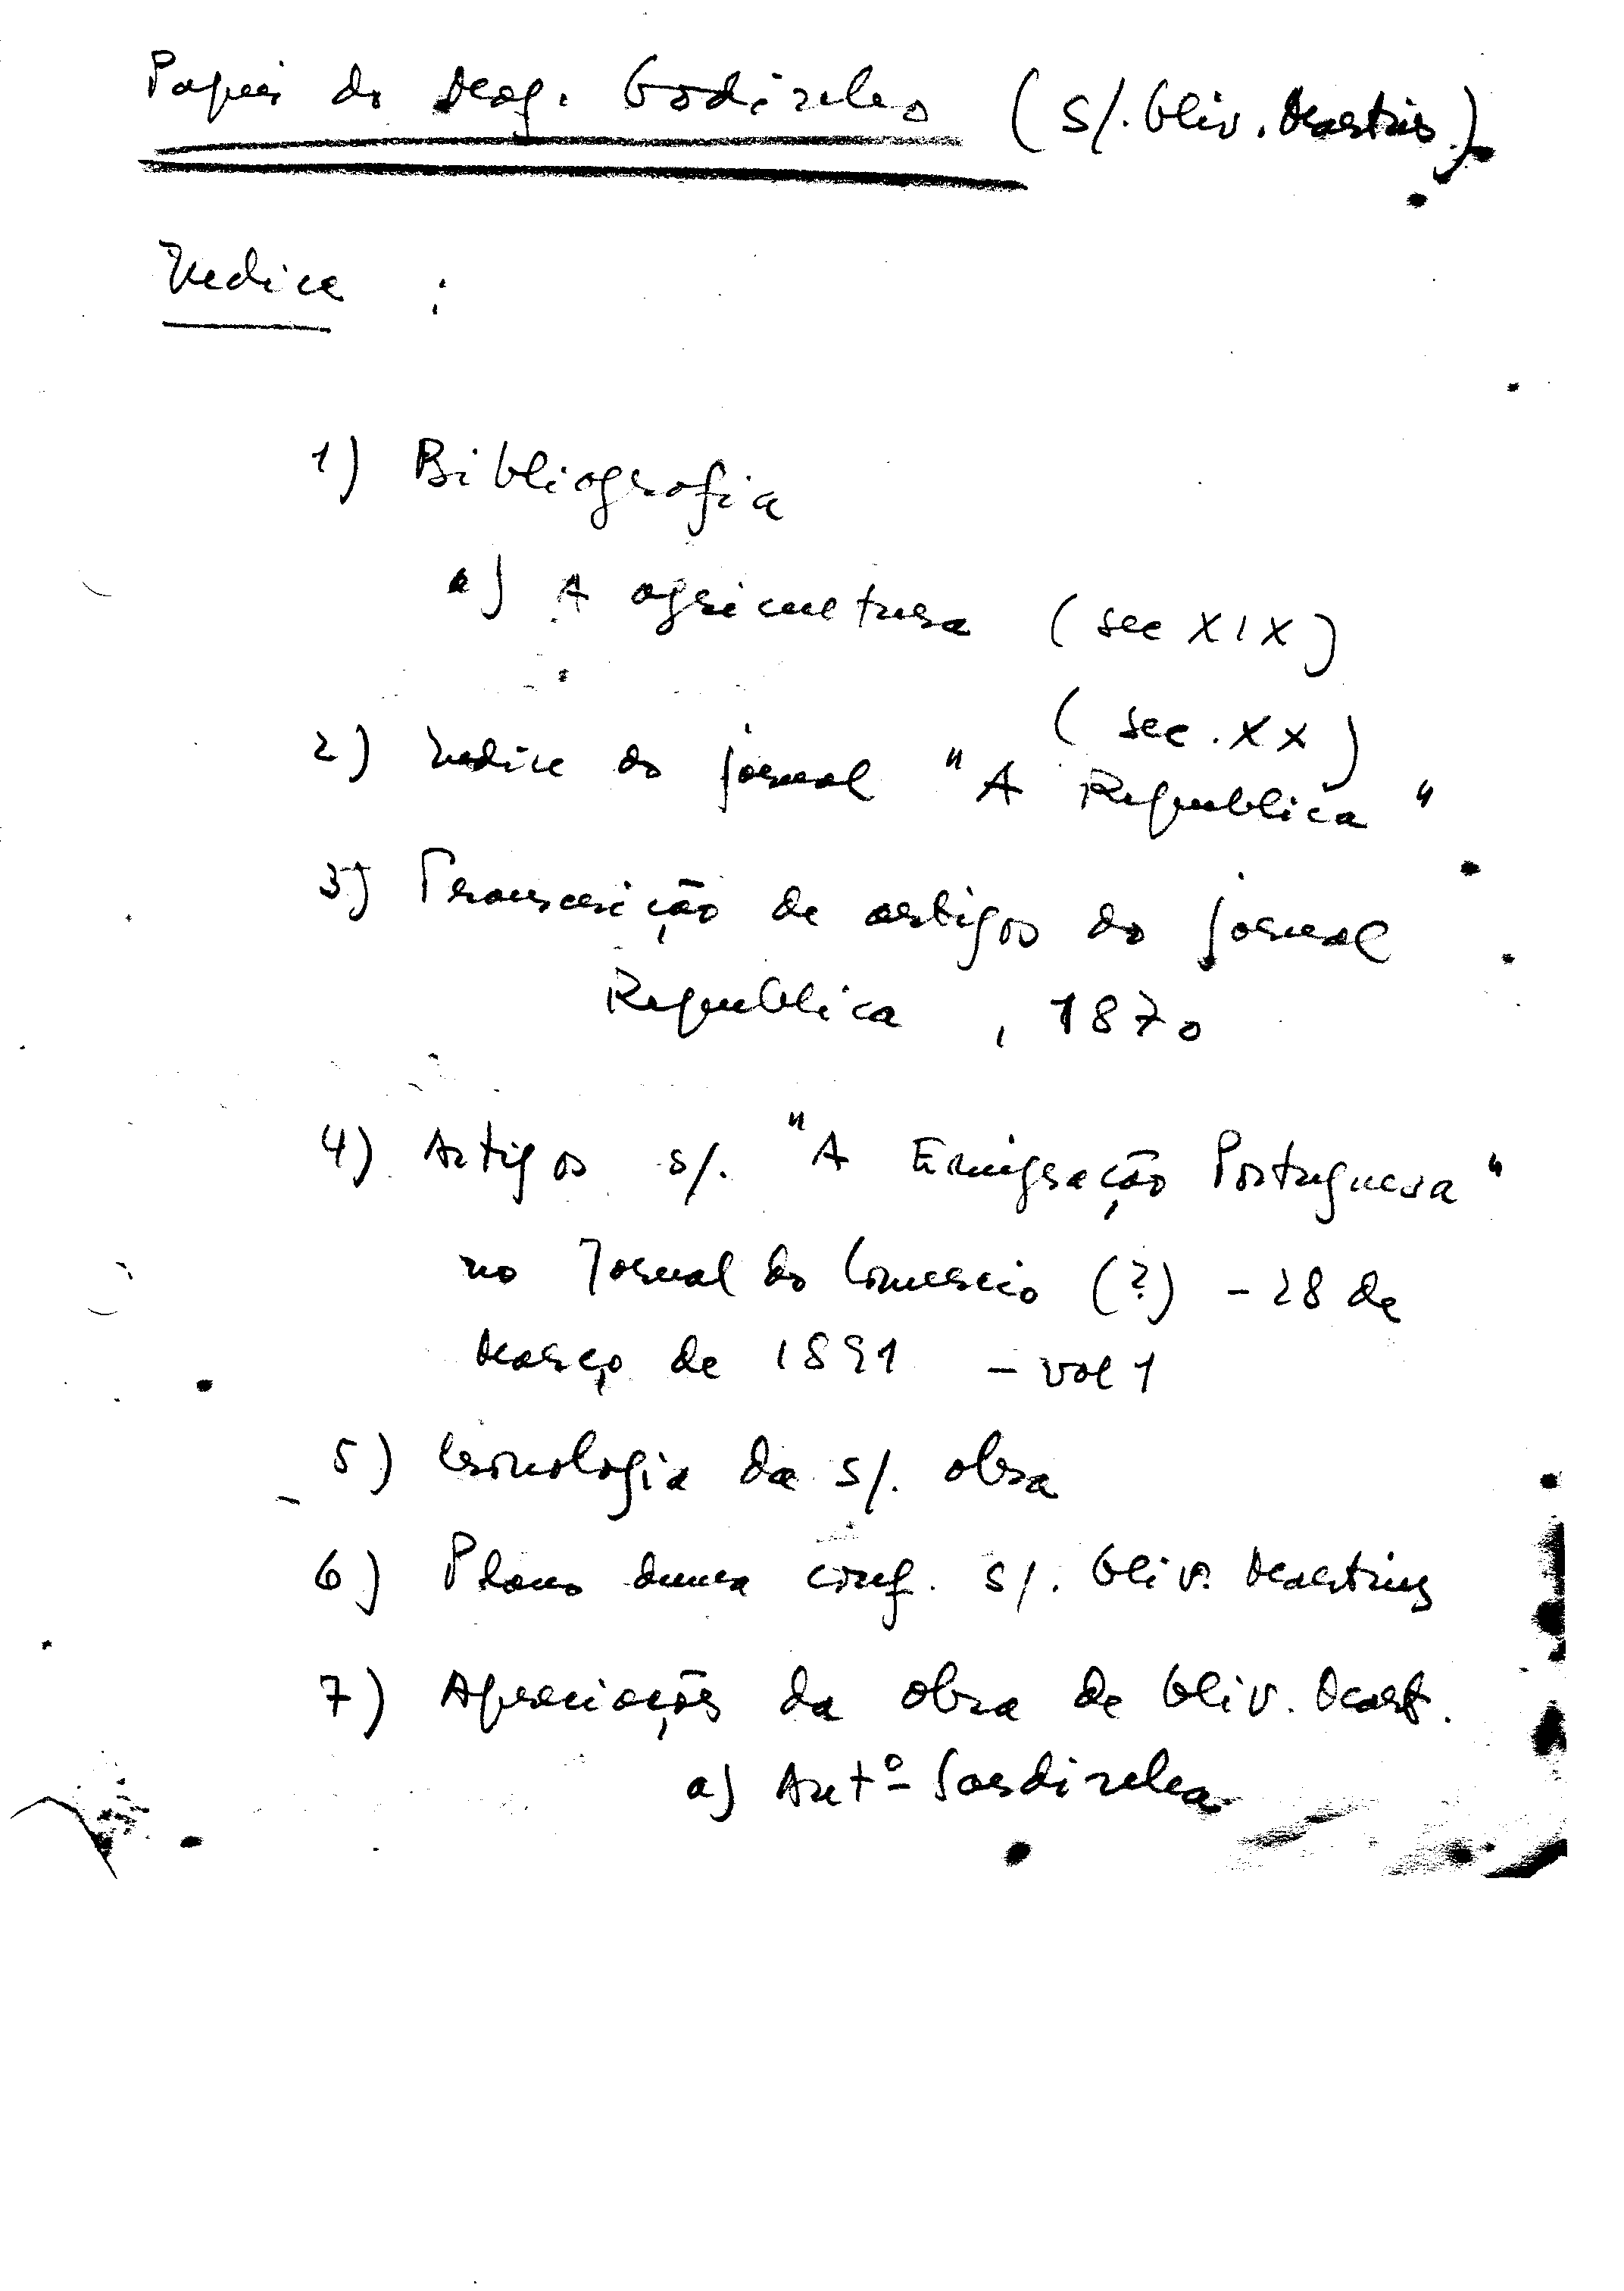 Papeis do Mag. Godinho (s/. Oliv. Martins)
Indice :
1) Bibliografia
a) A agricultura (sec XIX)
(sec. XX)
2) Indice do jornal "A Republica"
3) Transcrição de artigos do jornal
Republica, 1870
4) Artigos s/. "A Emigração Portuguesa"
no Jornal do Comercio (?) - 28 de
Março de 1891 - vol 1
5) Cronologia da s/. obra
6) Plano duma conf. s/. Oliv. Martins
7) Apreciações da obra de Oliv. Mart.
a) Antº Sardinha